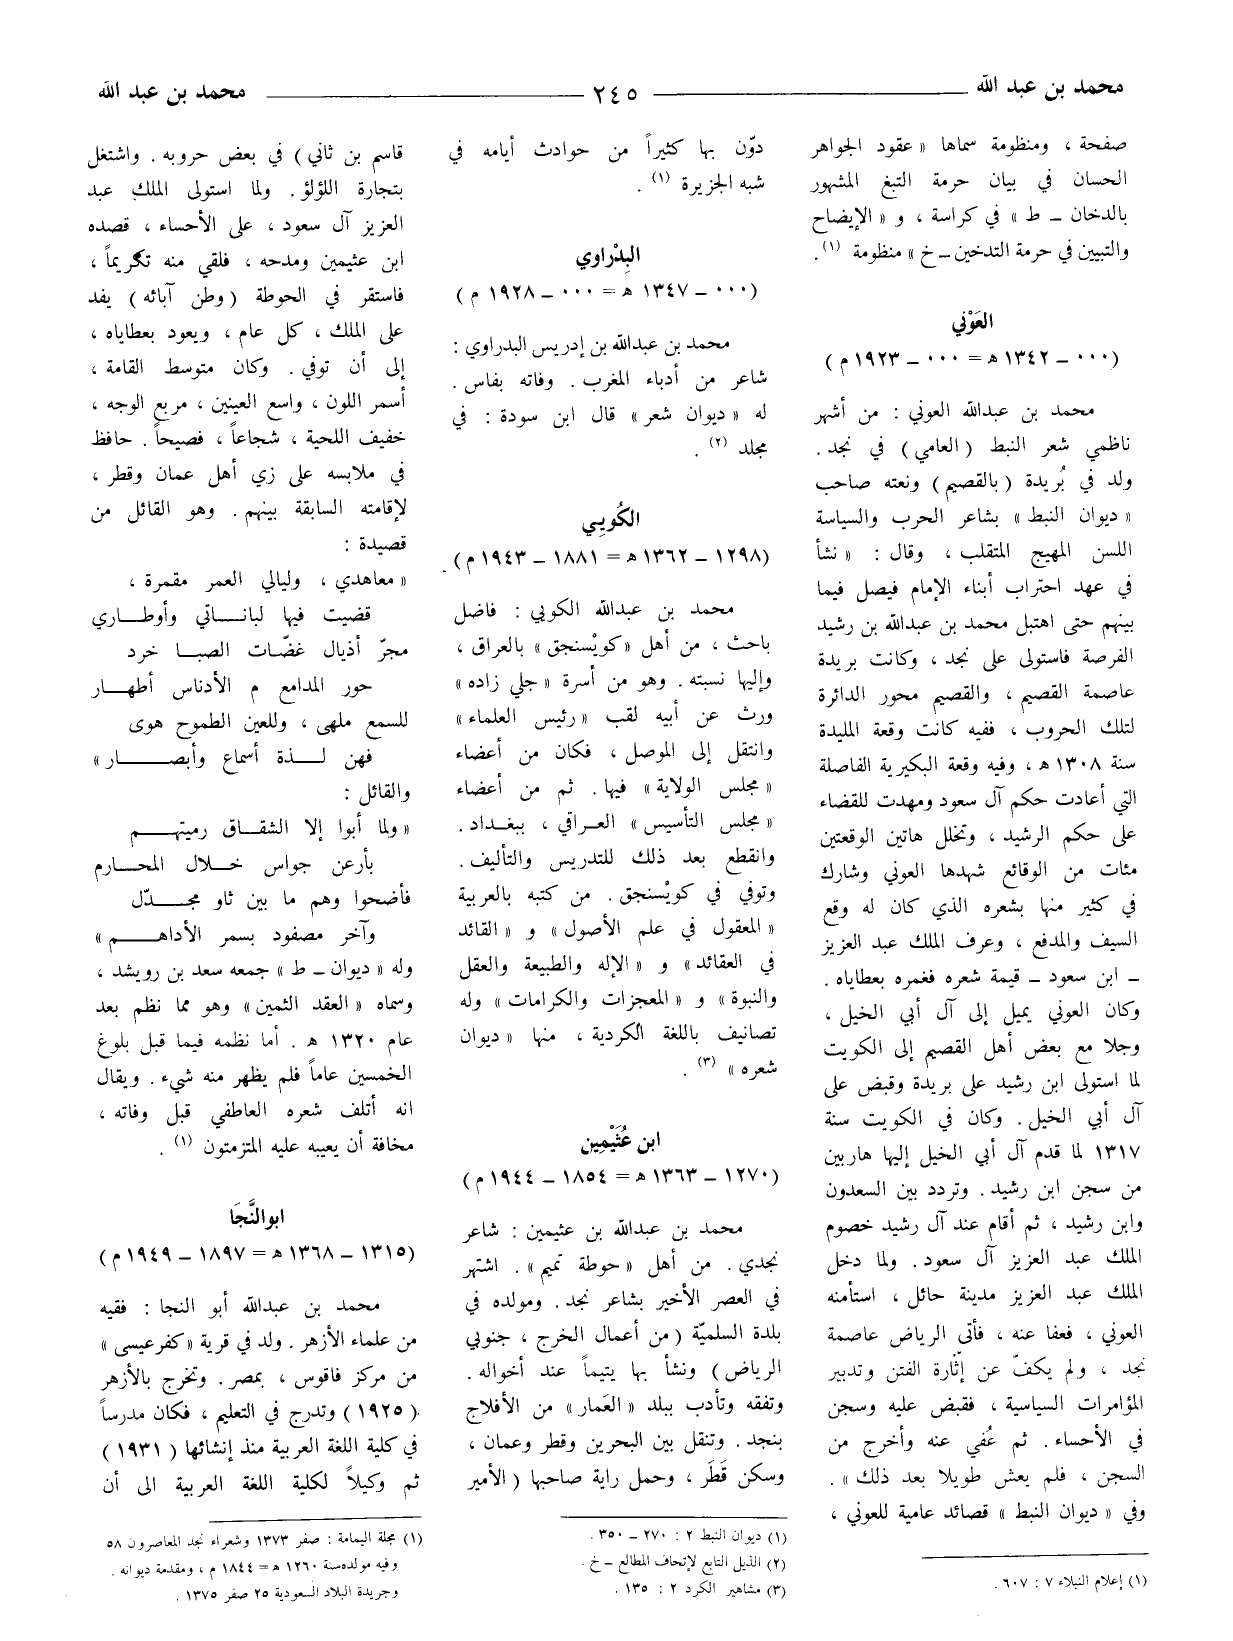 محمد بن عبد الله ٢٤٥ محمد بن عبد الله
صفحة ، ومنظومة سماها « عقود الجواهر
الحسان في بيان حرمة التبغ المشهور
بالدخان ــ ط » في كراسة ، و « الإيضاح
والتبيين في حرمة التدخين ــ خ » منظومة (١).
العَوْني
(٠٠٠ ــ ١٣٤٢ ه = ٠٠٠ ــ ١٩٢٣ م)
محمد بن عبدالله العوني : من أشهر
ناظمي شعر النبط (العامي) في نجد.
ولد في بُريدة (بالقصيم) ونعته صاحب
« ديوان النبط » بشاعر الحرب والسياسة
اللسن المهيج المتقلب ، وقال : « نشأ
في عهد احتراب أبناء الإمام فيصل فيما
بينهم حتى اهتبل محمد بن عبدالله بن رشيد
الفرصة فاستولى على نجد ، وكانت بريدة
عاصمة القصيم ، والقصيم محور الدائرة
لتلك الحروب ، ففيه كانت وقعة المليدة
سنة ١٣٠٨ ه ، وفيه وقعة البكيرية الفاصلة
التي أعادت حكم آل سعود ومهدت للقضاء
على حكم الرشيد ، وتخلل هاتين الوقعتين
مئات من الوقائع شهدها العوني وشارك
في كثير منها بشعره الذي كان له وقع
السيف والمدفع ، وعرف الملك عبد العزيز
ــ ابن سعود ــ قيمة شعره فغمره بعطاياه .
وكان العوني يميل إلى آل أبي الخيل ،
وجلا مع بعض أهل القصيم إلى الكويت
لما استولى ابن رشيد على بريدة وقبض على
آل أبي الخيل . وكان في الكويت سنة
١٣١٧ لما قدم آل أبي الخيل إليها هاربين
من سجن ابن رشيد . وتردد بين السعدون
وابن رشيد ، ثم أقام عند آل رشيد خصوم
الملك عبد العزيز آل سعود . ولما دخل
الملك عبد العزيز مدينة حائل ، استأمنه
العوني ، فعفا عنه ، فأتى الرياض عاصمة
نجد ، ولم يكفّ عن إثارة الفتن وتدبير
المؤامرات السياسية ، فقبض عليه وسجن
في الأحساء . ثم عُفي عنه وأخرج من
السجن ، فلم يعش طويلا بعد ذلك ».
وفي « ديوان النبط » قصائد عامية للعوني ،
(١) إعلام النبلاء ٧ : ٦٠٧ .
دوّن بها كثيراً من حوادث أيامه في
شبه الجزيرة (١) .
البِدْراوي
(٠٠٠ ــ ١٣٤٧ ه = ٠٠٠ ــ ١٩٢٨ م)
محمد بن عبدالله بن إدريس البدراوي :
شاعر من أدباء المغرب . وفاته بفاس .
له « ديوان شعر » قال ابن سودة : في
مجلد (٢) .
الكُويي
(١٢٩٨ ــ ١٣٦٢ ه = ١٨٨١ ــ ١٩٤٣ م)
محمد بن عبدالله الكويي : فاضل
باحث ، من أهل «كويْسنجق» بالعراق ،
وإليها نسبته . وهو من أسرة «جلي زاده»
ورث عن أبيه لقب «رئيس العلماء»
وانتقل إلى الموصل ، فكان من أعضاء
«مجلس الولاية» فيها. ثم من أعضاء
«مجلس التأسيس» العراقي ، ببغداد .
وانقطع بعد ذلك للتدريس والتأليف .
وتوفي في كويْسنجق . من كتبه بالعربية
«المعقول في علم الأصول» و «القائد
في العقائد» و «الإله والطبيعة والعقل
والنبوة» و «المعجزات والكرامات» وله
تصانيف باللغة الكردية ، منها «ديوان
شعره» (٣) .
ابن عُثَيْمِين
(١٢٧٠ ــ ١٣٦٣ ه = ١٨٥٤ ــ ١٩٤٤ م)
محمد بن عبدالله بن عثيمين : شاعر
نجدي . من أهل «حوطة تميم» . اشتهر
في العصر الأخير بشاعر نجد . ومولده في
بلدة السلميّة (من أعمال الخرج ، جنوبي
الرياض) ونشأ بها يتيماً عند أخواله .
وتفقه وتأدب ببلد «العَمار» من الأفلاج
بنجد . وتنقل بين البحرين وقطر وعمان ،
وسكن قَطَر ، وحمل راية صاحبها (الأمير
(١) ديوان النبط ٢ : ٢٧٠ ــ ٣٥٠ .
(٢) الذيل التابع لإتحاف المطالع ــ خ .
(٣) مشاهير الكرد ٢ : ١٣٥ .
قاسم بن ثاني) في بعض حروبه . واشتغل
بتجارة اللؤلؤ . ولما استولى الملك عبد
العزيز آل سعود ، على الأحساء ، قصده
ابن عثيمين ومدحه ، فلقي منه تكريماً ،
فاستقر في الحوطة (وطن آبائه) يفد
على الملك ، كل عام ، ويعود بعطاياه ،
إلى أن توفي . وكان متوسط القامة ،
أسمر اللون ، واسع العينين ، مربع الوجه ،
خفيف اللحية ، شجاعاً ، فصيحاً . حافظ
في ملابسه على زي أهل عمان وقطر ،
لإقامته السابقة بينهم . وهو القائل من
قصيدة :
«معاهدي ، وليالي العمر مقمرة ،
قضيت فيها لباناتي وأوطاري
مجرّ أذيال غضّات الصبا خرد
حور المدامع م الأدناس أطهار
للسمع ملهى ، وللعين الطموح هوى
فهن لذة أسماع وأبصار»
والقائل :
«ولما أبوا إلا الشقاق رميتهم
بأرعن جواس خلال المحارم
فأضحوا وهم ما بين ثاو مجدّل
وآخر مصفود بسمر الأداهم»
وله «ديوان ــ ط» جمعه سعد بن رويشد ،
وسماه «العقد الثمين» وهو مما نظم بعد
عام ١٣٢٠ ه . أما نظمه فيما قبل بلوغ
الخمسين عاماً فلم يظهر منه شيء . ويقال
انه أتلف شعره العاطفي قبل وفاته ،
مخافة أن يعيبه عليه المتزمتون (١) .
ابوالنَّجَا
(١٣١٥ ــ ١٣٦٨ ه = ١٨٩٧ ــ ١٩٤٩ م)
محمد بن عبدالله أبو النجا : فقيه
من علماء الأزهر . ولد في قرية «كفرعيسى»
من مركز فاقوس ، بمصر . وتخرج بالأزهر
(١٩٢٥) وتدرج في التعليم ، فكان مدرساً
في كلية اللغة العربية منذ إنشائها (١٩٣١)
ثم وكيلاً لكلية اللغة العربية الى أن
(١) مجلة اليمامة : صفر ١٣٧٣ وشعراء نجد المعاصرون ٥٨
وفيه مولده سنة ١٢٦٠ ه = ١٨٤٤ م ، ومقدمة ديوانه .
وجريدة البلاد السعودية ٢٥ صفر ١٣٧٥ .